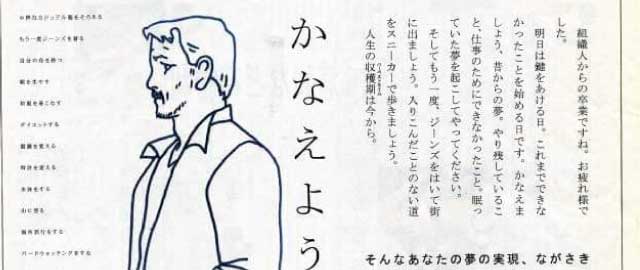 組織人からの卒業ですね。お疲れ様で
した。
明日は鍵をあける日。これまでできな
かったことを始める日です。かなえま
しょう、昔からの夢。やり残しているこ
と、仕事のためにできなかったこと。眠っ
ていた夢を起こしてやってください。
そしてもう一度、ジーンズをはいて街
に出ましょう。入りこんだことのない道
をスニーカーで歩きましょう。
人生の収穫期は今から。
かなえよう
もう一度ジーンズを穿る
自分の店を持つ
和服を着こなす
ダイエットする
眼鏡を変える
時計を変える
水泳をする
山に登る
海外旅行をする
バードウォッチングをする
そんなあなたの夢の実現、ながさき